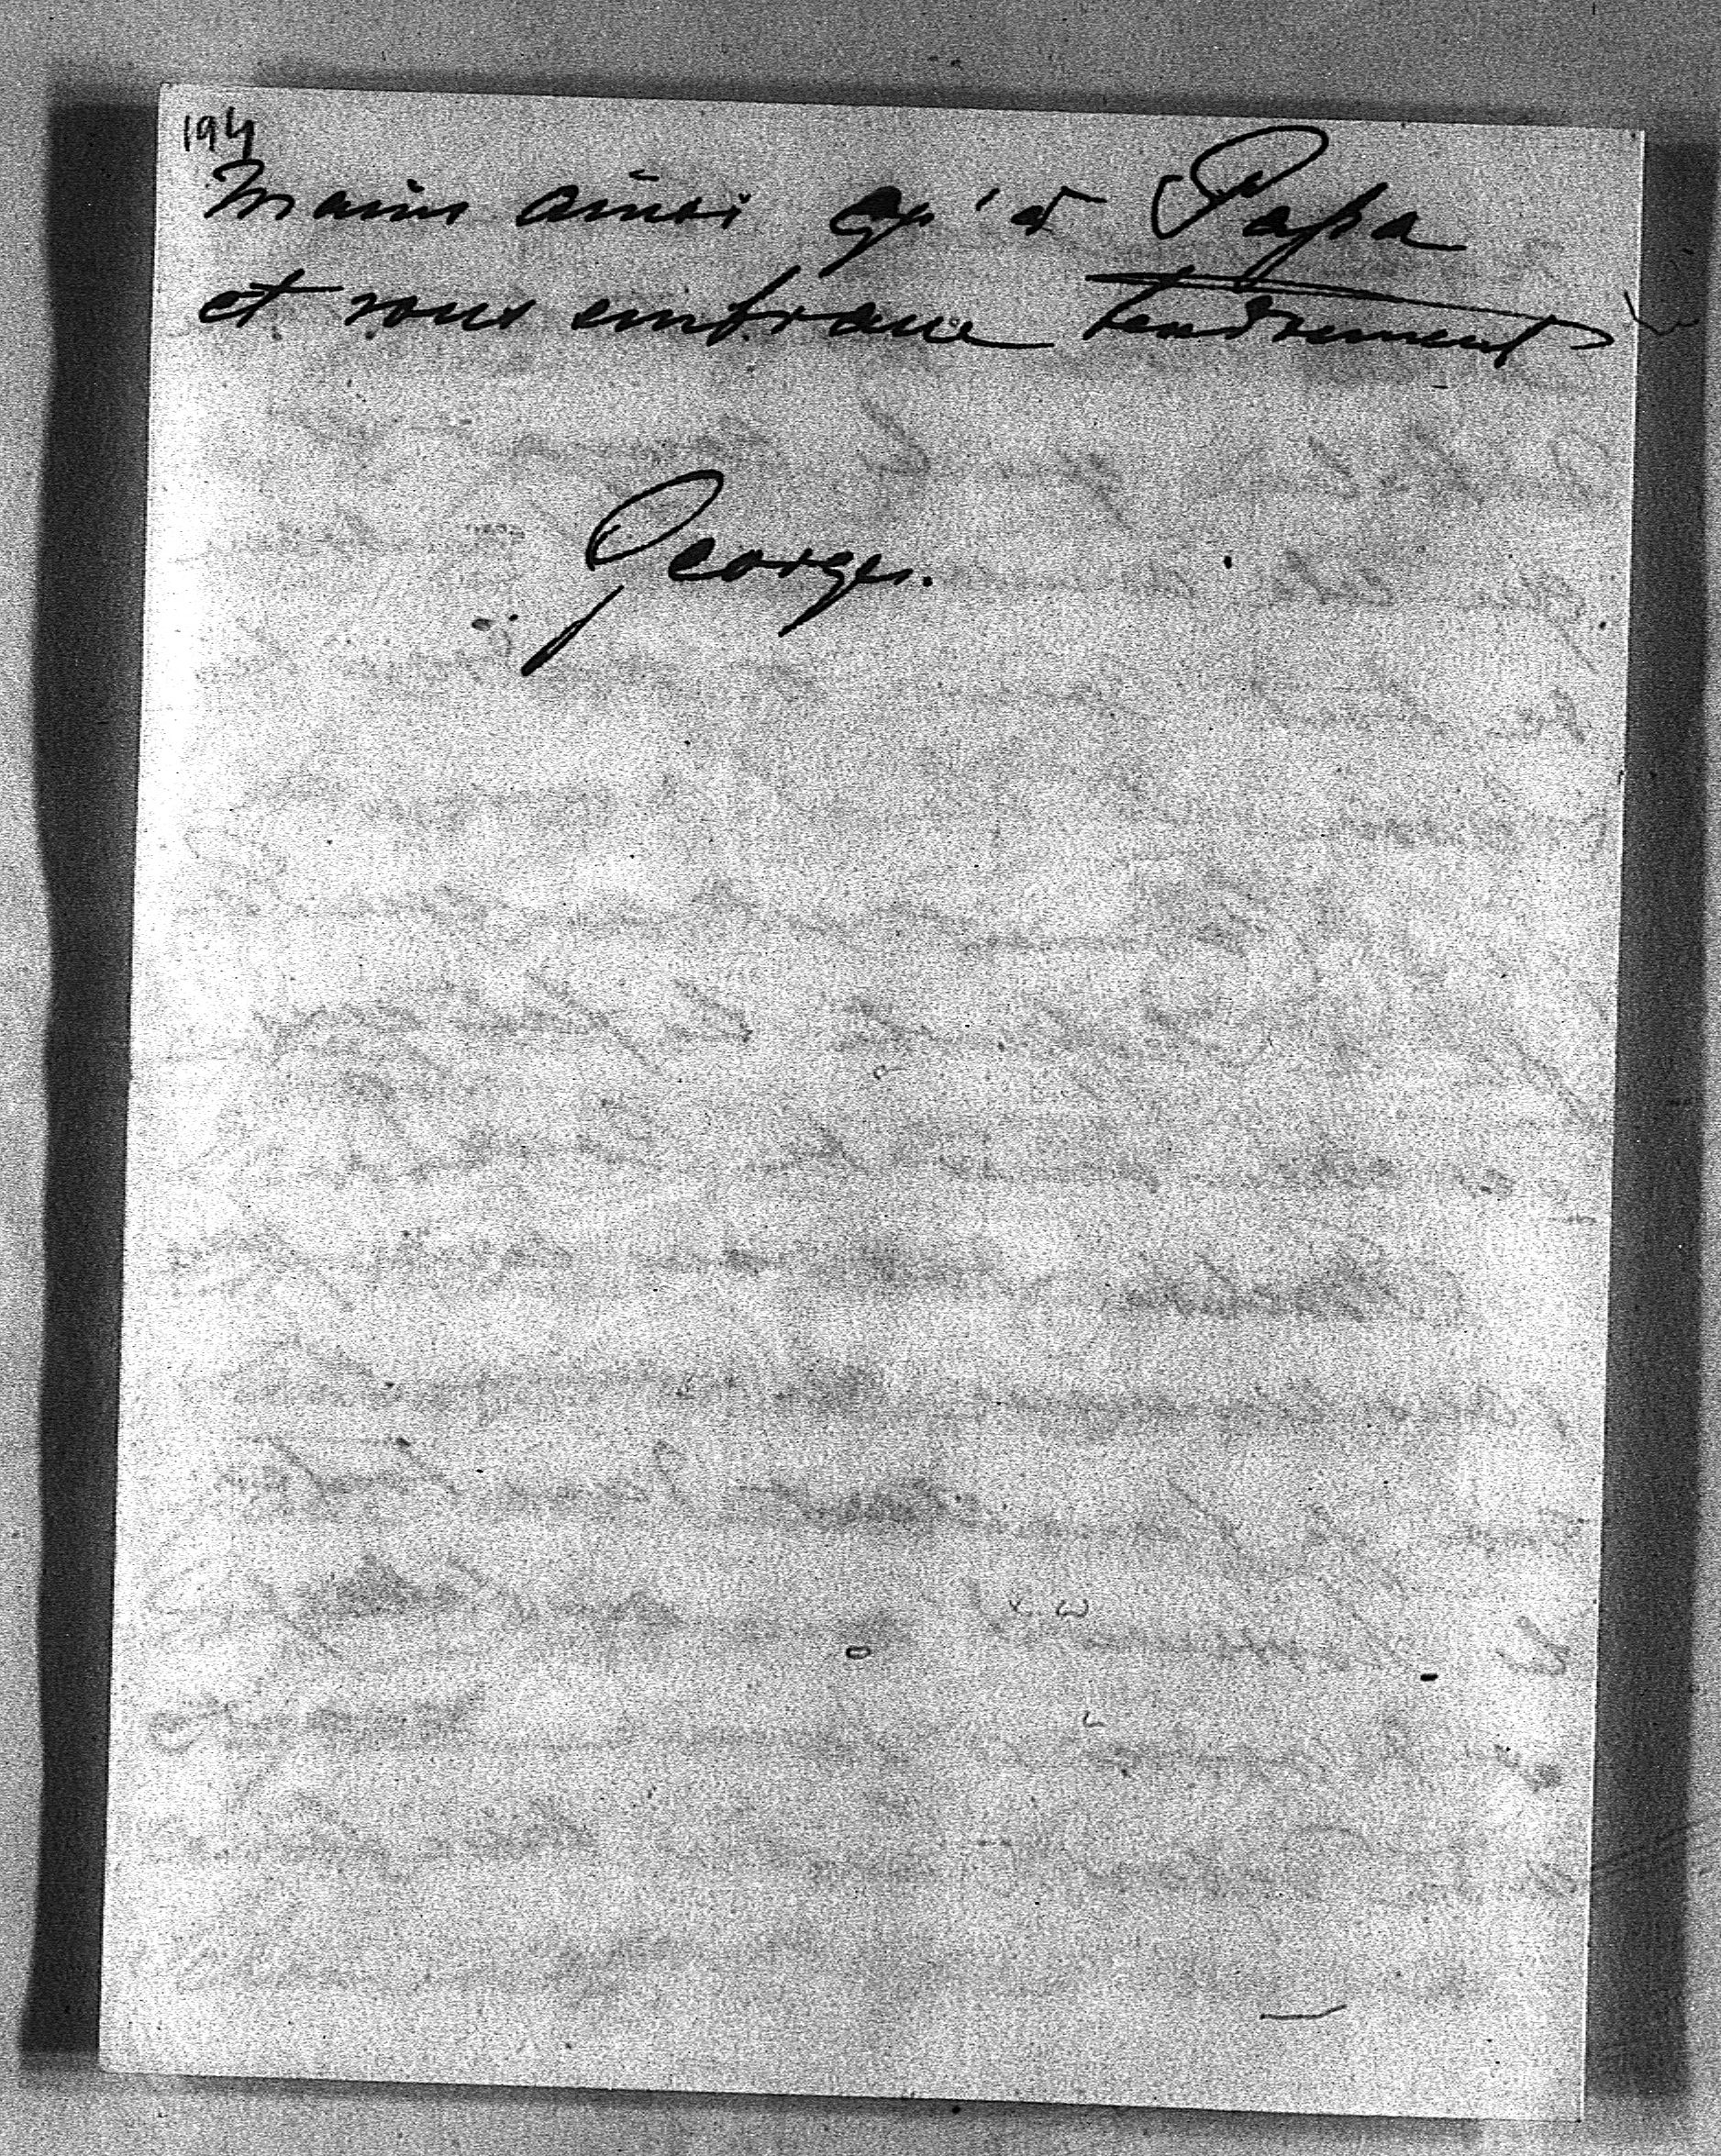 194
mains ainsi qu'à Papa
et vous embrasse tendrement
Georges.